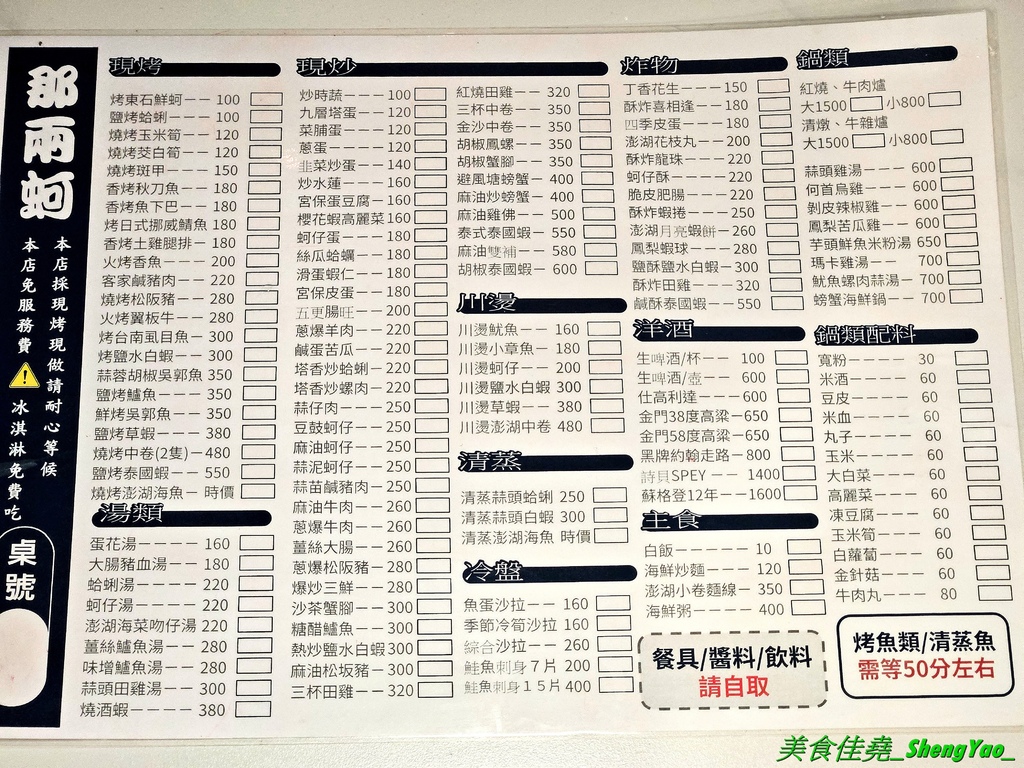 那兩蚵
本店採現烤現做請耐心等候
本店免服務費
冰淇淋免費吃
桌號
現烤
烤東石鮮蚵-- 100
鹽烤蛤蜊---- 100
燒烤玉米筍-- 120
燒烤茭白筍-- 120
燒烤斑甲---- 150
香烤秋刀魚-- 180
香烤魚下巴-- 180
烤日式挪威鯖魚 180
香烤土雞腿排- 180
火烤香魚---- 200
客家鹹豬肉-- 220
燒烤松阪豬-- 280
火烤翼板牛-- 280
烤台南虱目魚- 300
烤鹽水白蝦-- 300
蒜蓉胡椒吳郭魚 350
鹽烤鱸魚---- 350
鮮烤吳郭魚-- 350
鹽烤草蝦---- 380
燒烤中卷(2隻)-480
鹽烤泰國蝦-- 550
燒烤澎湖海魚- 時價
湯類
蛋花湯----- 160
大腸豬血湯-- 180
蛤蜊湯----- 220
蚵仔湯----- 220
澎湖海菜吻仔湯 220
薑絲鱸魚湯-- 280
味增鱸魚湯-- 280
蒜頭田雞湯-- 300
燒酒蝦----- 380
現炒
炒時蔬---- 100
九層塔蛋-- 120
菜脯蛋---- 120
蔥蛋----- 120
韭菜炒蛋-- 140
炒水蓮---- 160
宮保蛋豆腐-- 160
櫻花蝦高麗菜160
蚵仔蛋---- 180
絲瓜蛤蠣-- 180
滑蛋蝦仁-- 180
宮保皮蛋-- 180
五更腸旺-- 200
蔥爆羊肉-- 220
鹹蛋苦瓜-- 220
塔香炒蛤蜊- 220
塔香炒螺肉- 220
蒜仔肉---- 250
豆鼓蚵仔-- 250
麻油蚵仔-- 250
蒜泥蚵仔-- 250
蒜苗鹹豬肉- 250
麻油牛肉-- 260
蔥爆牛肉-- 260
薑絲大腸-- 260
蔥爆松阪豬- 280
爆炒三鮮-- 280
沙茶蟹腳-- 300
糖醋鱸魚-- 300
熱炒鹽水白蝦300
麻油松坂豬- 300
三杯田雞-- 320
紅燒田雞-- 320
三杯中卷-- 350
金沙中卷-- 350
胡椒鳳螺-- 350
胡椒蟹腳-- 350
避風塘螃蟹- 400
麻油炒螃蟹- 400
麻油雞佛-- 500
泰式泰國蝦- 550
麻油雙補-- 580
胡椒泰國蝦- 600
川燙
川燙魷魚-- 160
川燙小章魚- 180
川燙蚵仔-- 200
川燙鹽水白蝦 300
川燙草蝦-- 380
川燙澎湖中卷 480
清蒸
清蒸蒜頭蛤蜊 250
清蒸蒜頭白蝦 300
清蒸澎湖海魚 時價
冷盤
魚蛋沙拉-- 160
季節冷筍沙拉 160
綜合沙拉-- 260
鮭魚刺身7片 200
鮭魚刺身15片400
炸物
丁香花生---150
酥炸喜相逢-- 180
四季皮蛋--- 180
澎湖花枝丸-- 200
酥炸龍珠--- 220
蚵仔酥---- 220
脆皮肥腸--- 220
酥炸蝦捲--- 250
澎湖月亮蝦餅- 260
鳳梨蝦球--- 280
鹽酥鹽水白蝦-300
酥炸田雞--- 320
鹹酥泰國蝦-- 550
洋酒
生啤酒/杯-- 100
生啤酒/壺-- 600
仕高利達--- 600
金門38度高粱-650
金門58度高粱-650
黑牌約翰走路-800
詩貝SPEY-- 1400
蘇格登12年--1600
主食
白飯----- 10
海鮮炒麵-- 120
澎湖小卷麵線- 350
海鮮粥---- 400
餐具/醬料/飲料
請自取
鍋類
紅燒、牛肉爐
大1500 小800
清燉、牛雜爐
大1500 小800
蒜頭雞湯--- 600
何首烏雞--- 600
剝皮辣椒雞-- 600
鳳梨苦瓜雞-- 600
芋頭鮮魚米粉湯 650
瑪卡雞湯-- 700
魷魚螺肉蒜湯- 700
螃蟹海鮮鍋-- 700
鍋類配料
寬粉---- 30
米酒---- 60
豆皮---- 60
米血---- 60
丸子---- 60
玉米---- 60
大白菜--- 60
高麗菜--- 60
凍豆腐--- 60
玉米筍--- 60
白蘿蔔--- 60
金針菇--- 60
牛肉丸--- 80
烤魚類/清蒸魚
需等50分左右
美食佳堯_ShengYao_